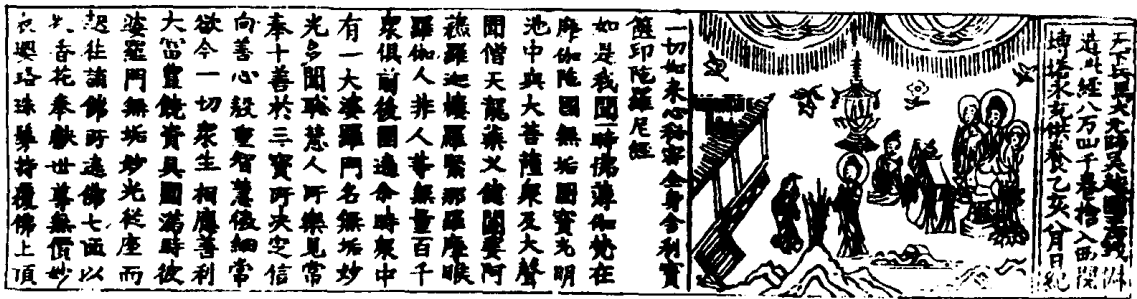 天下兵馬大元帥吳越國王錢俶
造此經八万四千卷捨入西關
塼塔永充供養乙亥八月日紀
一切如來心秘密全身舍利寶
篋印陀羅尼經
如是我聞一時佛薄伽梵在
摩伽陀國無垢園寶光明
池中與大菩薩衆及大聲
聞僧天龍藥叉健闥婆阿
蘇羅迦樓羅緊那羅摩睺
羅伽人非人等無量百千
衆俱前後圍遶尒時衆中
有一大婆羅門名無垢妙
光多聞聰慧人所樂見常
奉十善於三寶所决定信
向善心殷重智慧微細常
欲令一切衆生相應善利
大富豐饒資具圓滿時彼
婆羅門無垢妙光從座而
起往詣佛所遶佛七匝以
衆香花奉獻世尊無價妙
衣瓔珞珠鬘持覆佛上頂